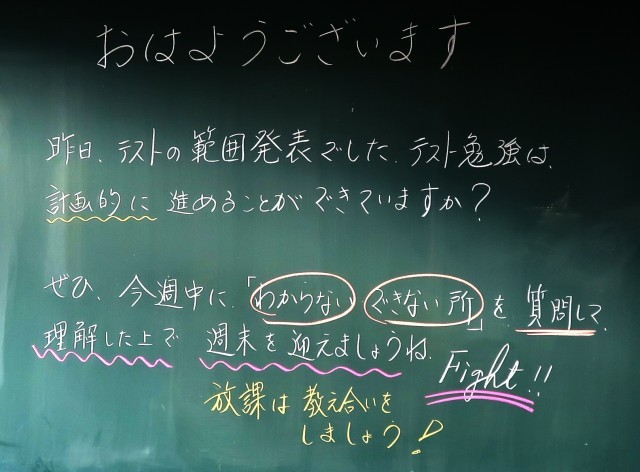 おはようございます
昨日、テストの範囲発表でした。テスト勉強は、
計画的に進めることができていますか？
ぜひ、今週中に、「わからない できない所」を質問して、
理解した上で 週末を迎えましょうね。
Fight!!
放課は教え合いを
しましょう！